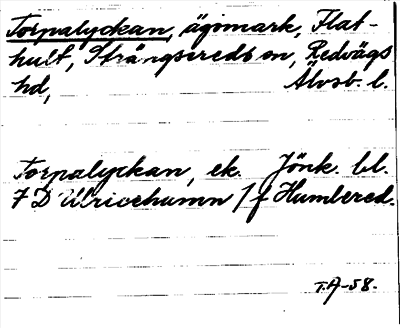 Torpalyckan, ägomark, Flat-
hult, Strängseredson, Redvägs
hd, Älvsb. l.
Torpalyckan, ek. Jönk. bl.
7 D Ulricehamn 1 f Humlered.
T.A-58.